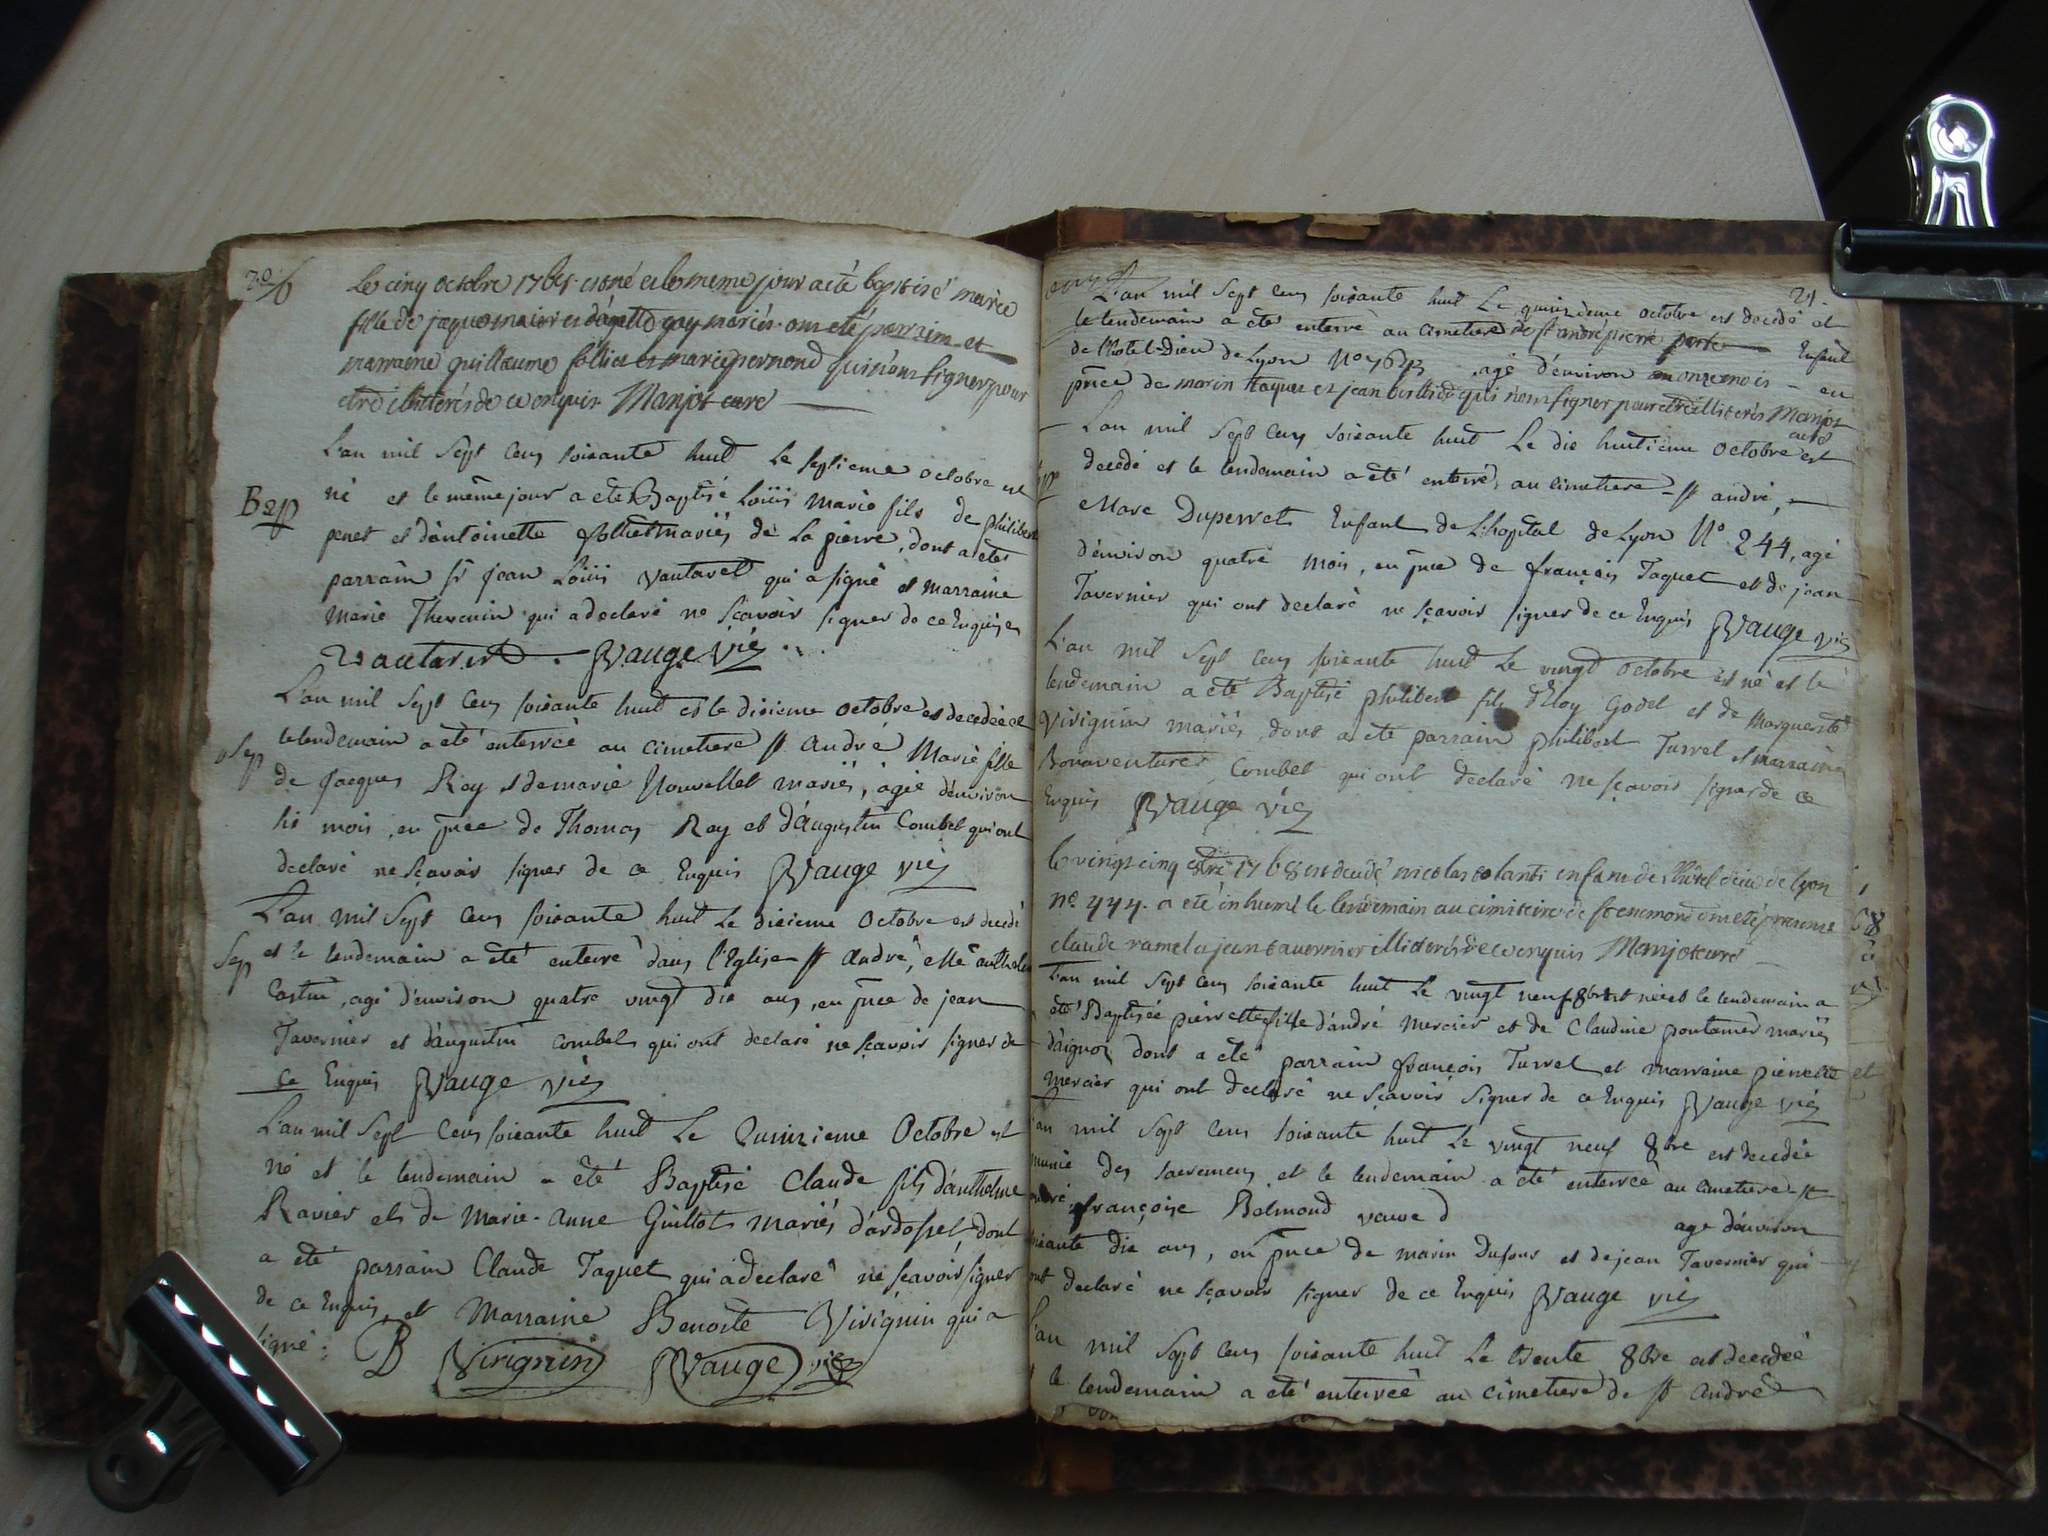 20
Le cinq octobre 1768 est né et le meme jour a eté baptisé marie
fille de jaques maior et gay mariés ont eté parrain et
marraine guillaume follies et marie pernond qui n'ont signer pour
etre illiterés de ce enquis Manjot curé
L'an mil Sept Cens soixante huit Le septieme octobre est
Bap
né et le même jour a eté Baptisé Loüis Marie fils de philibert
penet et d'antoinette folliet mariés de La pierre, dont a eté
parrain sr jean Loüis vautaret qui a signé et marraine
Marie Thevenin qui a declaré ne sçavoir signer de ce Enquise
vautaret . Vauge vic
L'an mil Sept Cens soixante huit et le dixieme octobre est decedée et
le lendemain a eté enterrée au cimetiere st andré Marie fille
Sep
de Jacques Roy et de marie Nouvellet mariés, agée d'environ
six mois, en pnce de Thomas Roy et d'Augustin Combet qui ont
declaré ne sçavoir signer de ce Enquis Vauge vic
L'an Mil Sept Cens soixante huit Le dixieme Octobre est decedé
Sep
et le lendemain a eté enterré dans l'Eglise st andré, Me anthelme
Costin, agé d'environ quatre vingt dix ans, en pnce de jean
Tavernier et d'augustin combet qui ont declaré ne sçavoir signer de
ce Enquis Vauge vic
L'an mil Sept Cens soixante huit Le Quinzieme Octobre est
né et le lendemain a été Baptisé Claude fils d'anthelme
Ravier et de Marie-anne Guillot mariés d'ardosset dont
a eté parrain Claude Taquet qui a declaré ne sçavoir signer
de ce Enquis, et Marraine Benoite Virignin qui a
signé: B Virignin Vauge vic
21.
L'an mil Sept Cens soixante huit Le quinzieme octobre est decedé et
le lendemain a eté enterré au cimetiere de st andré pierre Enfant
de l'hotel-Dieu de Lyon No agé d'environ onze mois en
pnce de marin taquet et jean qui n'ont signer pour etre illiterés Manjot
curé
L'an mil Sept Cens soixante huit Le dix huitieme octobre est
decedé et le lendemain a eté enterré, au cimetiere st andré,
Marc Duperret Enfant de L'hopital de Lyon No 244, agé
d'environ quatre mois, en pnce de françois Taquet et de jean
Tavernier qui ont declaré ne sçavoir signer de ce Enquis Vauge vic
L'an mil Sept Cens soixante huit Le vingt Octobre est né et le
lendemain a eté Baptisé philibert fils d'Eloy Godet et de Marguerite
Virignin mariés, dont a eté parrain philibert Turrel et marraine
Bonaventure Combet qui ont declaré ne sçavoir signer de ce
Enquis Vauge vic
le vingt cinq 1768 est decedé nicolas enfant de l'hotel dieu de lyon
no 444. a eté inhumé le lendemain au cimitiere de st
claude ramel et jean tavernier illiterés de ce enquis Manjot curé
L'an mil Sept Cens soixante huit Le vingt neuf 8bre est née et le lendemain a
été Baptisée pierrette fille d'andré Mercier et de Claudine pontanier mariés
d'aignoz dont a eté parrain françois Turrel et marraine pierrette
Mercier qui ont declaré ne sçavoir signer de ce Enquis Vauge vic
L'an mil Sept Cens soixante huit Le vingt neuf 8bre est decedée
munie des sacremens et le lendemain a eté enterrée au cimetiere st
andré françoise Belmond veuve d agée d'environ
soixante dix ans, en pnce de marin Dufour et de jean Tavernier qui
ont declaré ne sçavoir signer de ce Enquis Vauge vic
L'an mil Sept Cens soixante huit Le trente 8bre est decedée
et le lendemain a eté enterrée au cimetiere de st andré